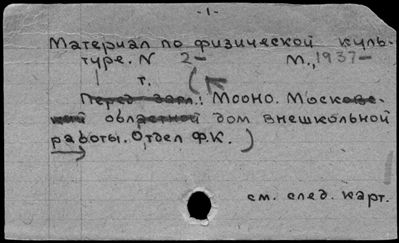 -1-
Материал по физической куль-
туре. N 2- М., 1937-
т.
Перед загл.: Мооно. Московс-
кий областной дом внешкольной
работы. Отдел Ф.К. )
см. след. карт.